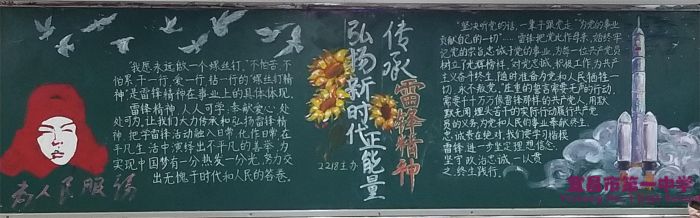 传承雷锋精神
弘扬新时代正能量
2218主办
"我愿永远做一个螺丝钉,"不怕苦,不
怕累干一行,爱一行,钻一行的"螺丝钉精
神"是雷锋精神在事业上的具体体现.
雷锋精神,人人可学;奉献爱心,处
处可为,让我们大力传承和弘扬雷锋精
神,把学雷锋活动融入日常,化作日常,在
平凡生活中演绎出不平凡的善举,为
实现中国梦有一分热发一分光,努力交
出无愧于时代和人民的答卷.
为人民服务
"坚决听党的话,一辈子跟党走""为党的事业
贡献自己的一切"……雷锋把党比作母亲,始终牢
记党的宗旨,忠诚于党的事业,为每一位共产党员
树立了光辉榜样,对党忠诚,积极工作,为共产
主义奋斗终生,随时准备为党和人民牺牲一
切,永不叛党,庄重的誓言需要无声的行动,
需要千千万万像雷锋那样的共产党人,用默
默无闻,埋头苦干的实际行动履行共产党
员的义务,为党和人民的事业奉献终生.
忠诚贵在绝对,我们要学习楷模
雷锋,进一步坚定理想信念.
坚守政治忠诚,一以贯
之,终生践行.
宜昌市第一中学